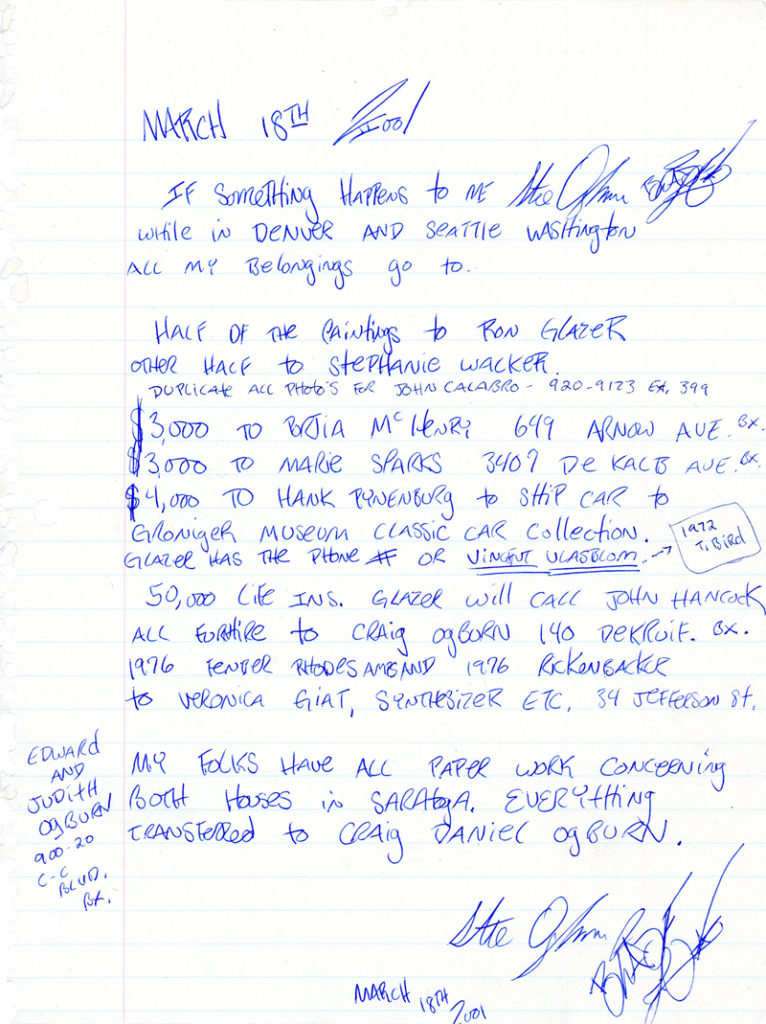 MARCH 18TH 2001
IF SOMETHING HAPPENS to ME
while in DENVER AND SEATTLE WASHington
ALL MY Belongings go to.
HALF OF THE PAiNtiNgs to RON GLAZER
OTHER HALF to STEPHANIE WACKER.
DUPLICATE ALL PHOTO'S FOR JOHN CALABRO - 920-9123 Ext. 399
$3,000 TO BRJIA McHENRY 649 ARNOW AVE. BX.
$3,000 TO MARIE SPARKS 3407 DE KALB AVE. BX.
$4,000 TO HANK PYNENBURG to SHIP CAR to
GRONIGER MUSEUM CLASSIC CAR COllection.
GLAZER HAS THE PHONE # OR VINCENT VLASBLOM. →
1972
T. BIRD
50,000 LIFE INS. GLAZER will CALL JOHN HANCOCK
ALL to CRAIG OGBURN 140 DEKRUIF. BX.
1976 FENDER RHODES AMP AND 1976 RICKENBACKER
to VERONICA GIAT, SYNTHESIZER ETC, 34 JEFFERSON St.
EDWARD
AND
JUDITH
OGBURN
900-20
C-C
BLVD.
BX.
MY FOLKS HAVE ALL PAPER WORK CONCERNING
BOTH HOUSES in SARATOGA. EVERYTHING
TRANSFERRED to CRAIG DANIEL OGBURN.
MARCH 18TH 2001